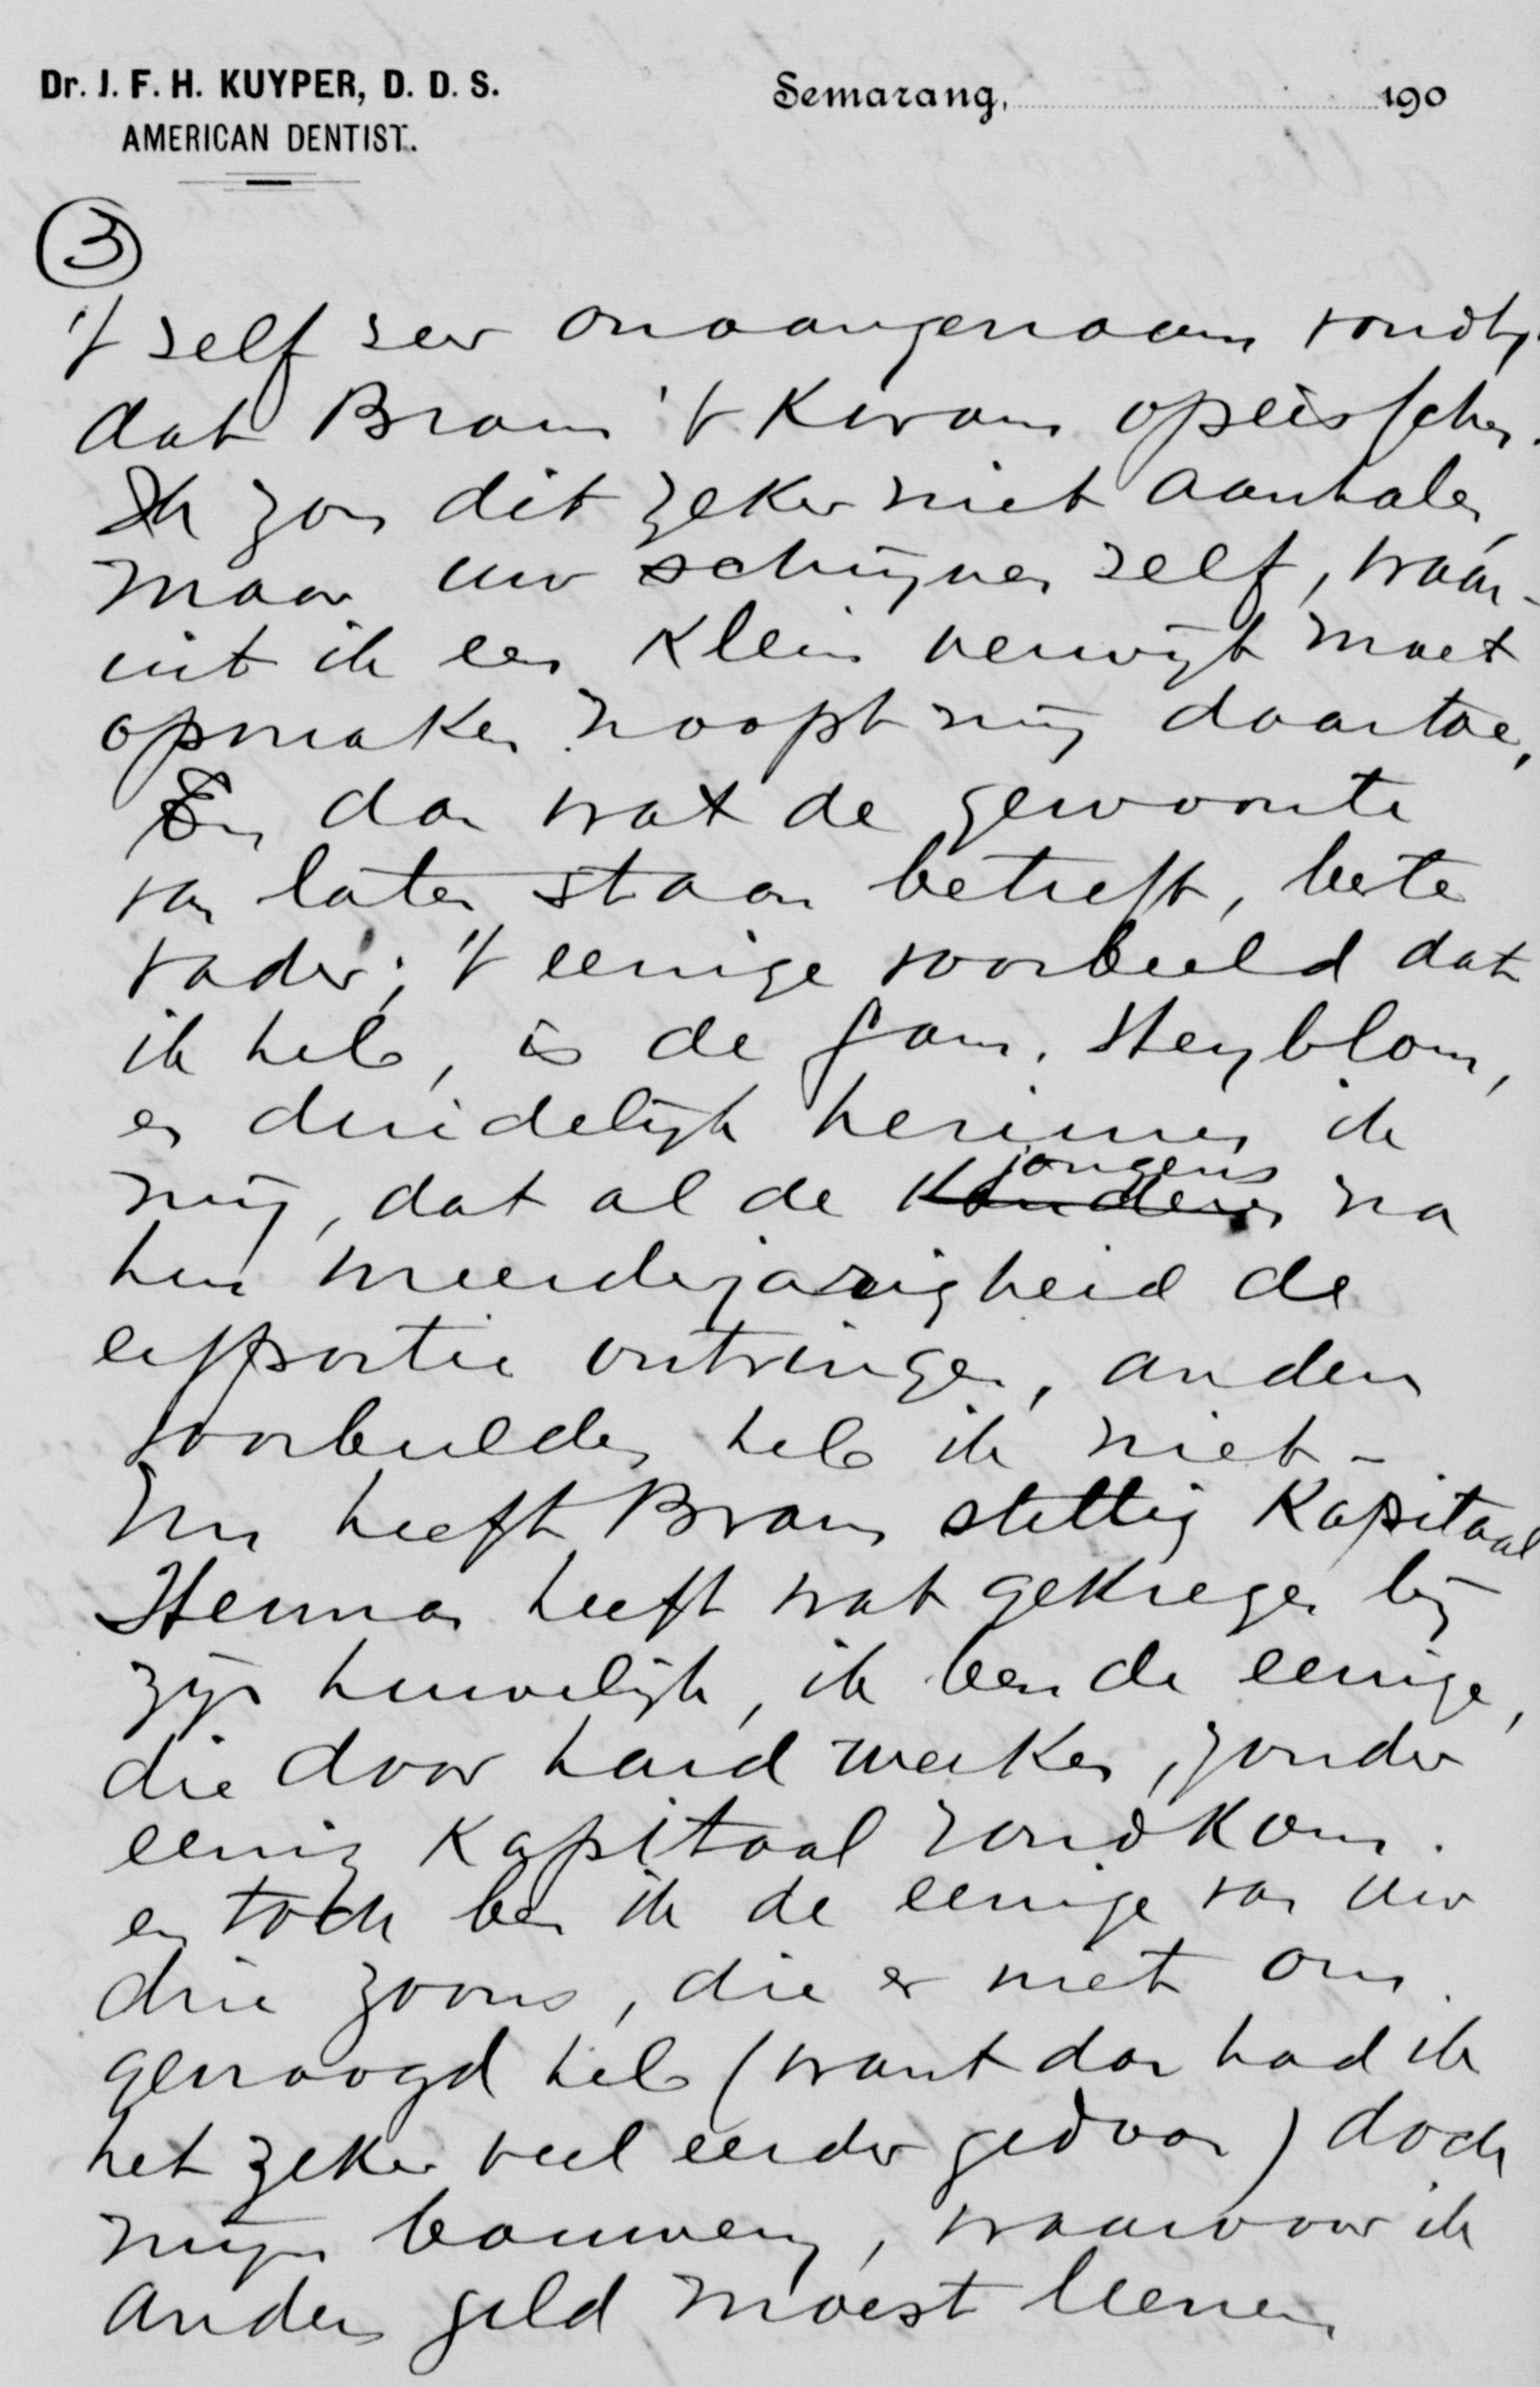 Dr. J. F. H. KUYPER, D. D. S.
AMERICAN DENTIST.
Semarang, 190
3
't zelf zeer onaangenaam vondt,
dat Bram 't kwam opeisschen.
Ik zou dit zeker niet aanhalen,
maar uw schrijven zelf, waar-
uit ik een klein verwijt moet
opmaken noopt mij daartoe,
En dan wat de gewoonte
van laten staan betreft, beste
vader; 't eenige voorbeeld dat
ik heb, is de fam. Heyblom,
en duidelijk herinner ik
mij, dat al de kinderen jongens na
hun meerderjarigheid de
erfportie ontvingen, andere
voorbeelden heb ik niet -
Nu heeft Bram stellig kapitaal
Herman heeft wat gekregen bij
zijn huwelijk, ik ben de eenige,
die door hard werken, zonder
eenig kapitaal rondkom.
en toch ben ik de eenige van uw
drie zoons, die er niet om
gevraagd heb (want dan had ik
het zeker veel eerder gedaan) doch
mijn bouwen, waarvoor ik
anders geld moest leenen